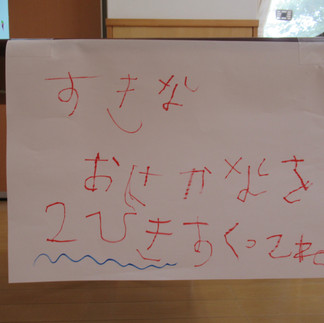 すきな
おさかなを
2ひきすくってね。